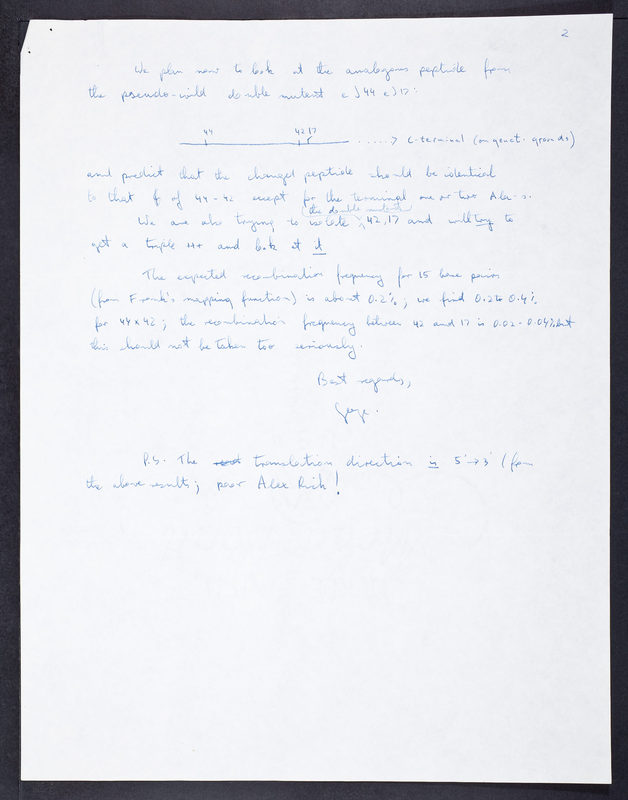 2
We plan now to look at the analogous peptide from
the pseudo-wild double mutant eJ44 eJ17:
44 42 17
.....> C-terminal (on genet. grounds)
and predict that the changed peptide should be identical
to that of 44-42 except for the terminal one or two Ala-s.
the double mutant
We are also trying to isolate 42,17 and will try to
get a triple ++ and look at it
The expected recombination frequency for 15 base pairs
(from Frank's mapping function) is about 0.2%; we find 0.2 to 0.4%
for 44 x 42; the recombination frequency between 42 and 17 is 0.02-0.04% but
this should not be taken too seriously.
Best regards,
P.S. The translation direction is 5'→3' (from
the above results; poor Alex Rich!